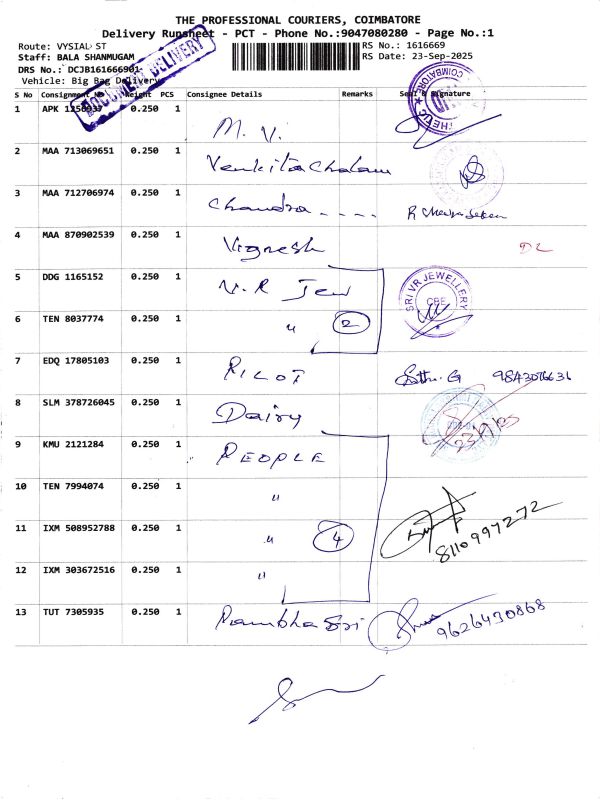 THE PROFESSIONAL COURIERS, COIMBATORE
Delivery Runsheet - PCT - Phone No.:9047080280 - Page No.:1
Route: VYSIAL ST RS No.: 1616669
Staff: BALA SHANMUGAM RS Date: 23-Sep-2025
DRS No.: DCJB161666901
Vehicle: Big Bag Delivery
DOCUMENT DELIVERY
S No Consignment No Weight PCS Consignee Details Remarks Seal & Signature
1 APK 0.250 1 M. V.
COIMBATORE
2 MAA 713069651 0.250 1 Venkitachalam
3 MAA 712706974 0.250 1 Chandra ----
4 MAA 870902539 0.250 1 Vignesh
5 DDG 1165152 0.250 1 V.R Jew
SRI VR JEWELLERY
CBE
6 TEN 8037774 0.250 1 " 2
7 EDQ 17805103 0.250 1 PILOT
8 SLM 378726045 0.250 1 Dairy
9 KMU 2121284 0.250 1 PEOPLE
10 TEN 7994074 0.250 1 "
11 IXM 508952788 0.250 1 " 4 8110997272
12 IXM 303672516 0.250 1 "
13 TUT 7305935 0.250 1 Rambha Sri 9626430868